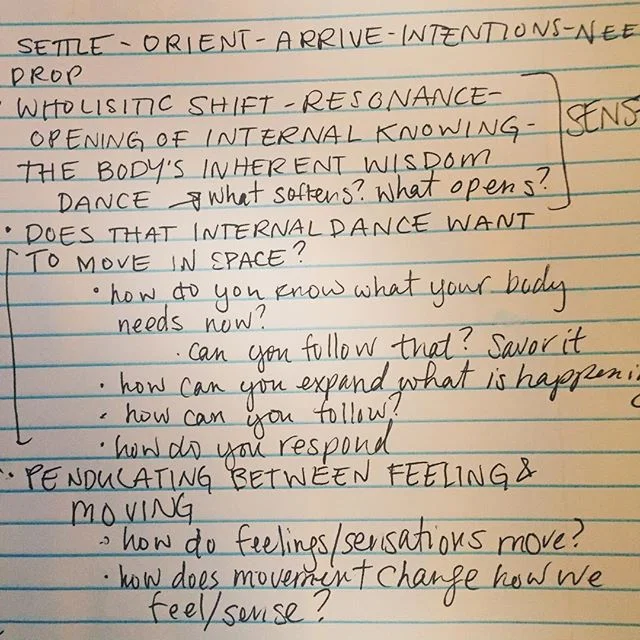 SETTLE - ORIENT - ARRIVE - INTENTIONS - NEE
DROP
• WHOLISITIC SHIFT - RESONANCE -
OPENING OF INTERNAL KNOWING -
SENS
THE BODY'S INHERENT WISDOM
DANCE → what softens? what opens?
• DOES THAT INTERNAL DANCE WANT
TO MOVE IN SPACE?
• how do you know what your body
needs now?
• can you follow that? Savor it
• how can you expand what is happeni
• how can you follow?
• how do you respond
• PENDULATING BETWEEN FEELING &
MOVING
• how do feelings/sensations move?
• how does movement change how we
feel/sense?